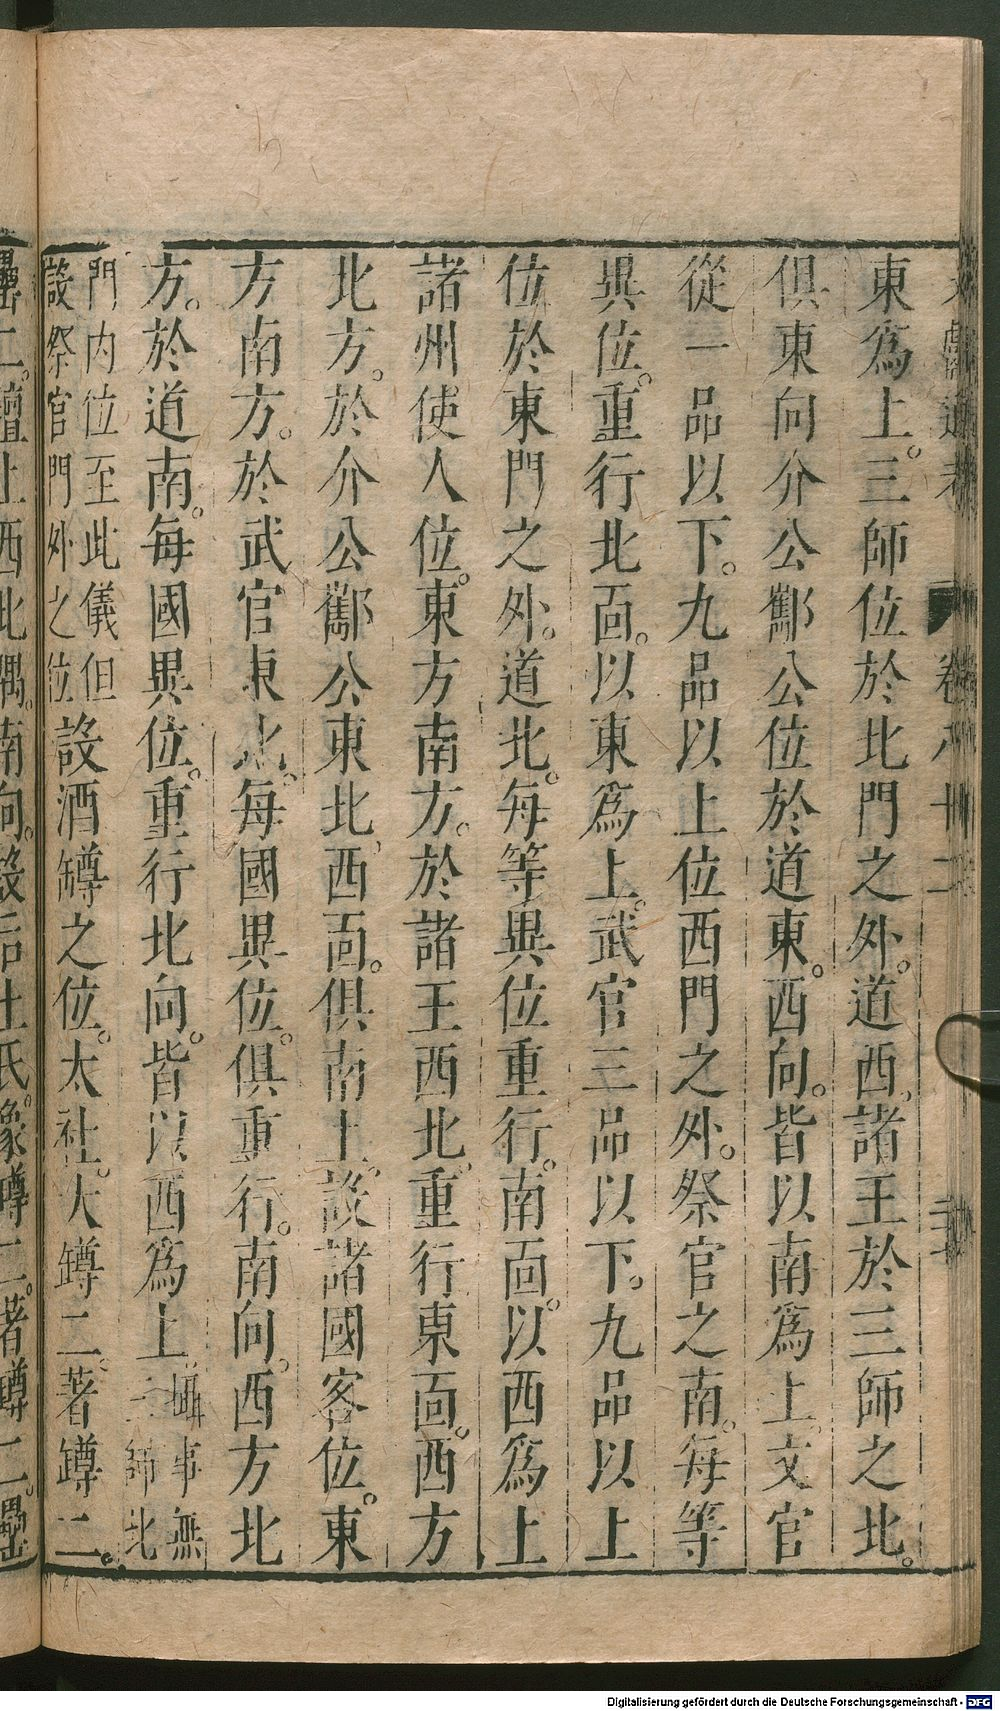 文獻通考 卷八十二
東爲上。三師位於北門之外。道西、諸王於三師之北。
俱東向介公酅公位於道東。西向。皆以南爲上。文官
從一品以下。九品以上位西門之外。祭官之南。每等
異位。重行北面。以東爲上。武官三品以下。九品以上
位於東門之外。道北。每等異位重行。南面。以西爲上
諸州使人位。東方南方。於諸王西北。重行東面。西方
北方。於介公酅公東北、西面。俱南上。設諸國客位。東
方南方。於武官東北。每國異位。俱重行。南向。西方北
方。於道南。每國異位。重行北向。皆以西爲上 攝事無三師北
門內位至此儀但設祭官門外之位 設酒罇之位。太社。大罇二。著罇二。
罍二。壇上西北隅。南向。設后土氏。象罇二。著罇二。罍
Digitalisierung gefördert durch die Deutsche Forschungsgemeinschaft - DFG